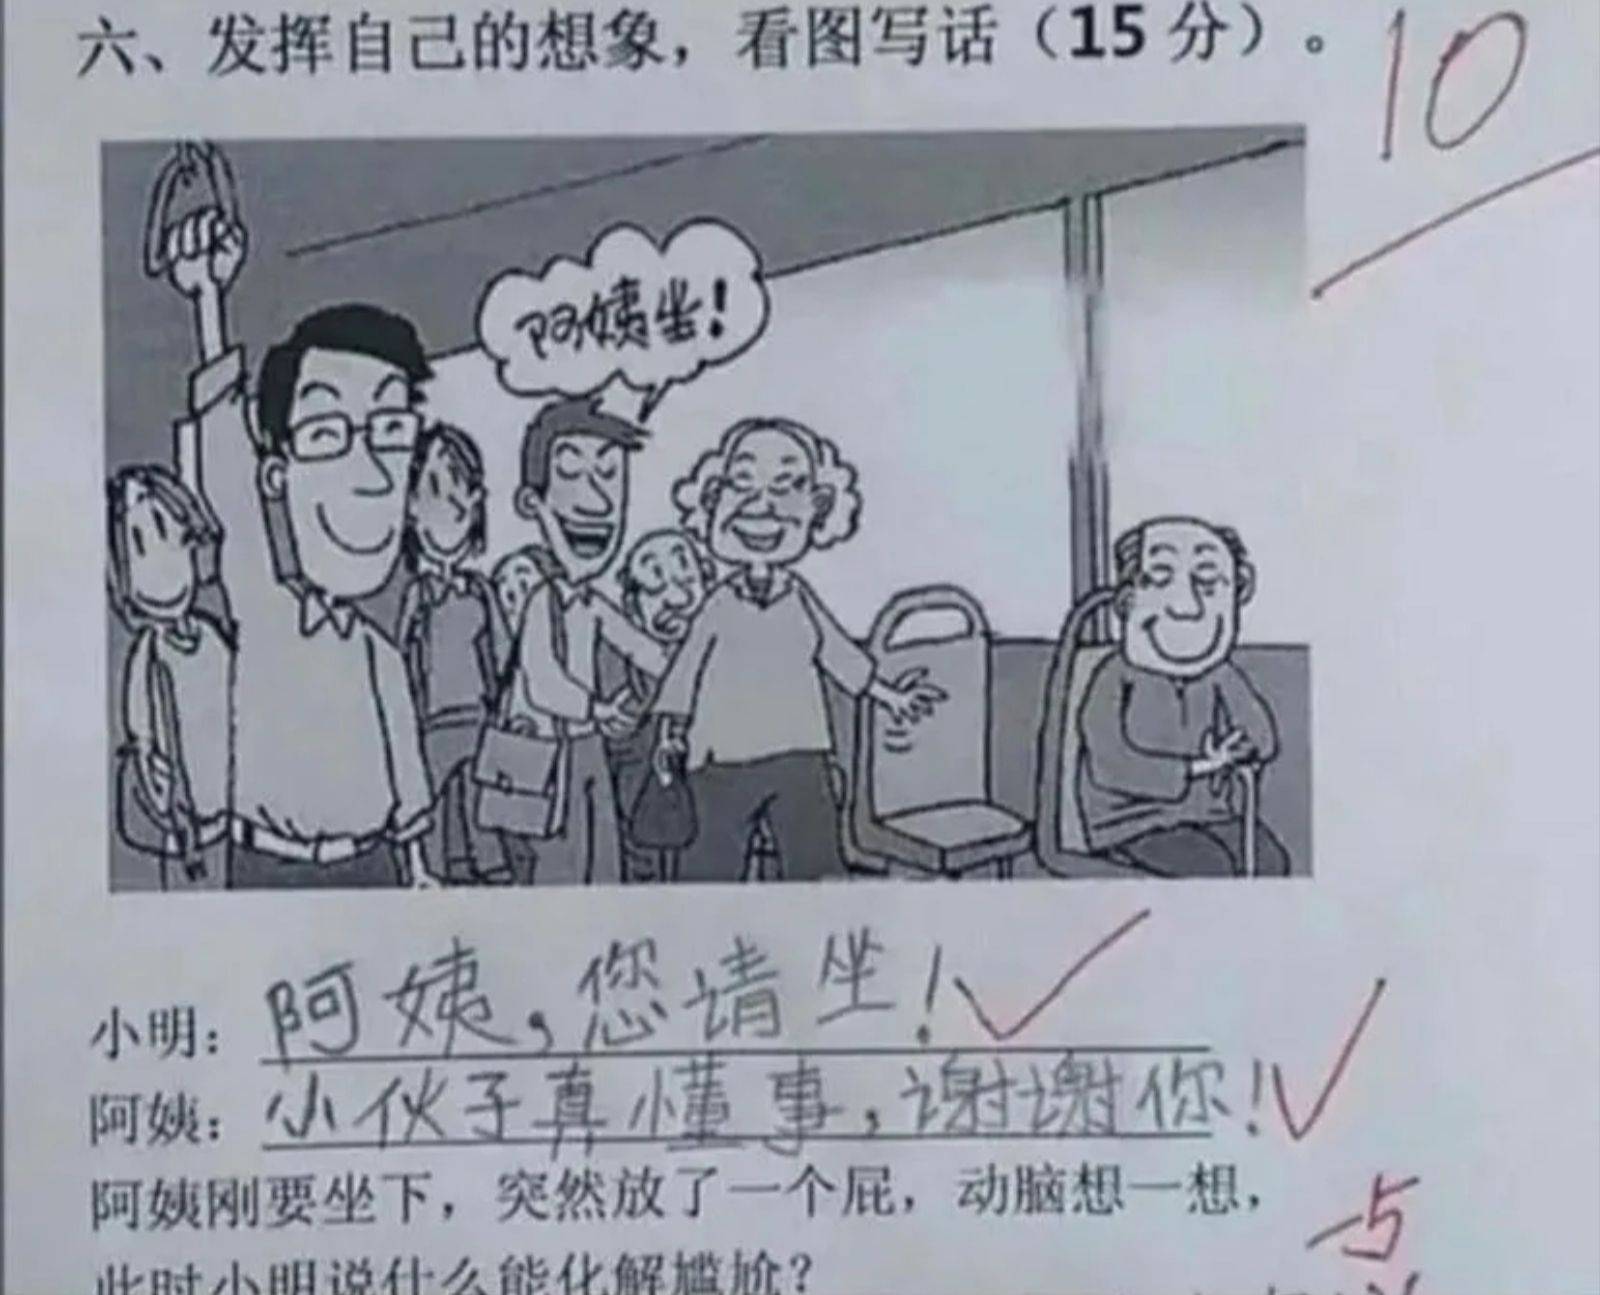 六、发挥自己的想象，看图写话（15 分）。
10
阿姨坐！
小明：阿姨，您请坐！
阿姨：小伙子真懂事，谢谢你！
阿姨刚要坐下，突然放了一个屁，动脑想一想，
-5
此时小明说什么能化解尴尬？